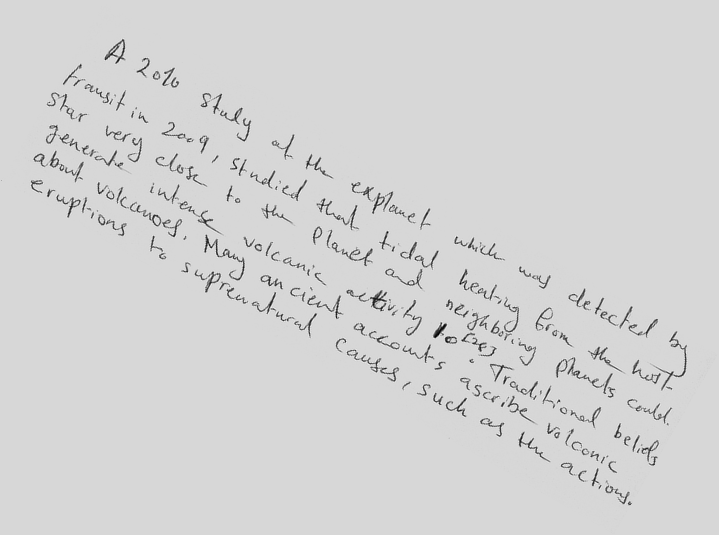 A 2010 study of the explanet which was detected by
transit in 2009, studied that tidal heating from the host
star very close to the planet and neighboring planets could.
generate intense volcanic activity Io[28]. Traditional beliefs
about volcanoes. Many ancient accounts ascribe volcanic
eruptions to suprenatural causes, such as the actions.